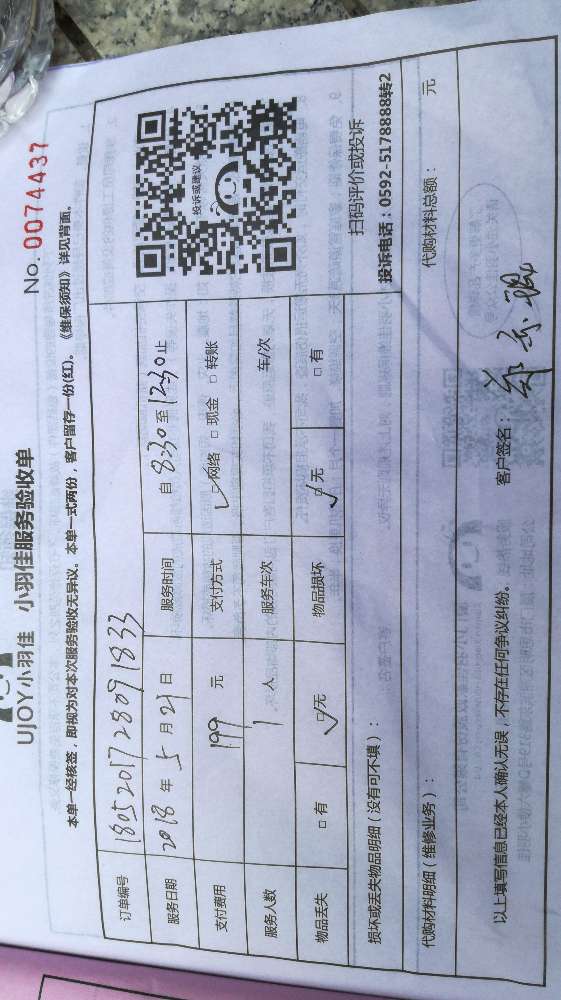 UJOY小羽佳 小羽佳服务验收单
No. 0074437
本单一经核签，即视为对本次服务验收无异议。本单一式两份，客户留存一份(红)。《维保须知》详见背面。
订单编号 1805201728091833
服务日期 2018 年 5 月 21 日 服务时间 自 8:30 至 12:30 止
支付费用 199 元 支付方式 ✓网络 □现金 □转账
服务人数 1 人 服务车次 车/次
物品丢失 □有 ☑无 物品损坏 ☑无 □有
投诉或建议
扫码评价或投诉
投诉电话：0592-5178888转2
损坏或丢失物品明细（没有可不填）：
代购材料明细（维修业务）： 代购材料总额： 元
以上填写信息已经本人确认无误，不存在任何争议纠纷。 客户签名：